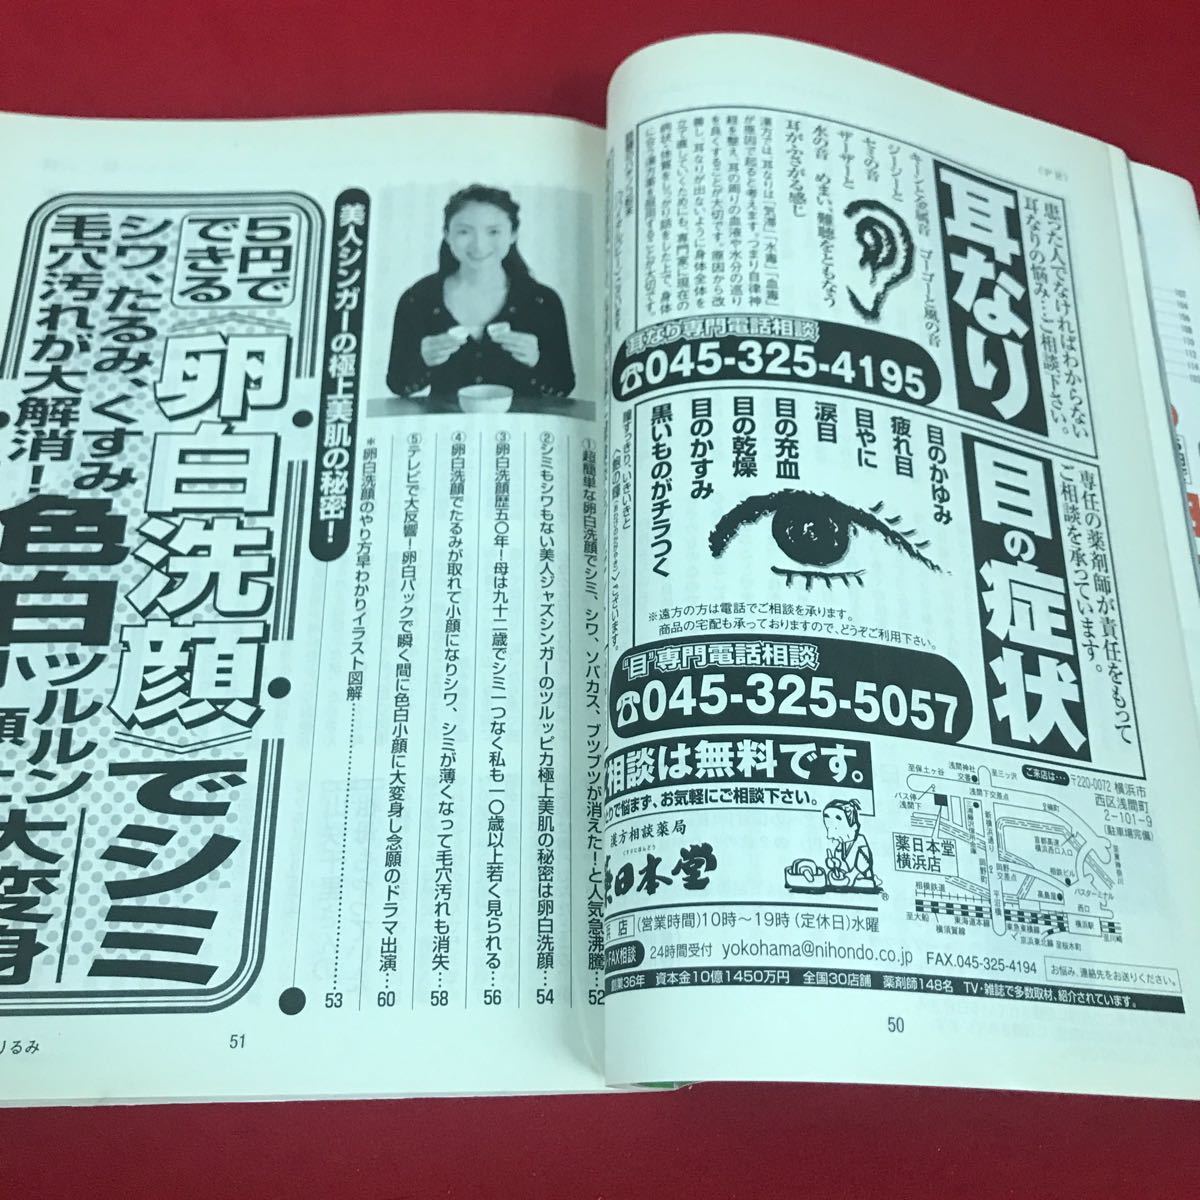 (PR)
耳なり
患った人でなければわからない
耳なりの悩み…ご相談下さい。
キーンと金属音 ゴーゴーと風の音
ジージーと
セミの音
ザーザーと
水の音 めまい、難聴をともなう
耳がふさがる感じ
漢方では、耳なりは「気滞」「水毒」「血毒」
が原因で起ると考えます。つまり自律神
経を整え、耳の周りの血液や水分の巡り
を良くすることが大切です。原因から改
善し、耳なりが出ないように身体全体を
立て直していくためにも、専門家に現在の
病状・体質をしっかり話をした上で、身体
に合う漢方薬を服用することが大切です。
耳なり専門電話相談
☎045-325-4195
目の症状
専任の薬剤師が責任をもって
ご相談を承っています。
目のかゆみ
疲れ目
目やに
涙目
目の充血
目の乾燥
目のかすみ
黒いものがチラつく
※遠方の方は電話でご相談を承ります。
商品の宅配も承っておりますので、どうぞご利用下さい。
“目”専門電話相談
☎045-325-5057
相談は無料です。
とりで悩まず、お気軽にご相談下さい。
漢方相談薬局
くすりにほんどう
日本堂
®
ご来店は…
〒220-0072 横浜市
西区浅間町
2-101-9
(駐車場完備)
至保土ヶ谷
浅間神社
交番
至三ッ沢
バス停
浅間下
浅間下交差点
薬日本堂
横浜店
新横浜通り
首都高速
横浜西口入口
至東神奈川
相鉄ビル
バスターミナル
高島屋
西口
交番
岡野
交差点
平沼橋
横浜駅
相模鉄道
至大船
東海道本線
横須賀線
東急東横線
京浜東北線
至桜木町
至川崎
店
(営業時間)10時〜19時(定休日)水曜
FAX相談
24時間受付 yokohama@nihondo.co.jp FAX.045-325-4194
お悩み、連絡先をお送りください。
創業36年 資本金10億1450万円 全国30店舗 薬剤師148名 TV・雑誌で多数取材、紹介されています。
50
美人シンガーの極上美肌の秘密!
5円で
できる
《卵白洗顔》でシミ
シワ、たるみ、くすみ
毛穴汚れが大解消!
色白ツルルン
大変身
①超簡単な卵白洗顔でシミ、シワ、ソバカス、ブツブツが消えた!と人気急沸騰…52
②シミもシワもない美人ジャズシンガーのツルッピカ極上美肌の秘密は卵白洗顔…54
③卵白洗顔歴五〇年!母は九十二歳でシミ一つなく私も一〇歳以上若く見られる…56
④卵白洗顔でたるみが取れて小顔になりシワ、シミが薄くなって毛穴汚れも消失…58
⑤テレビで大反響!卵白パックで瞬く間に色白小顔に大変身し念願のドラマ出演…60
*卵白洗顔のやり方早わかりイラスト図解…53
51
りるみ